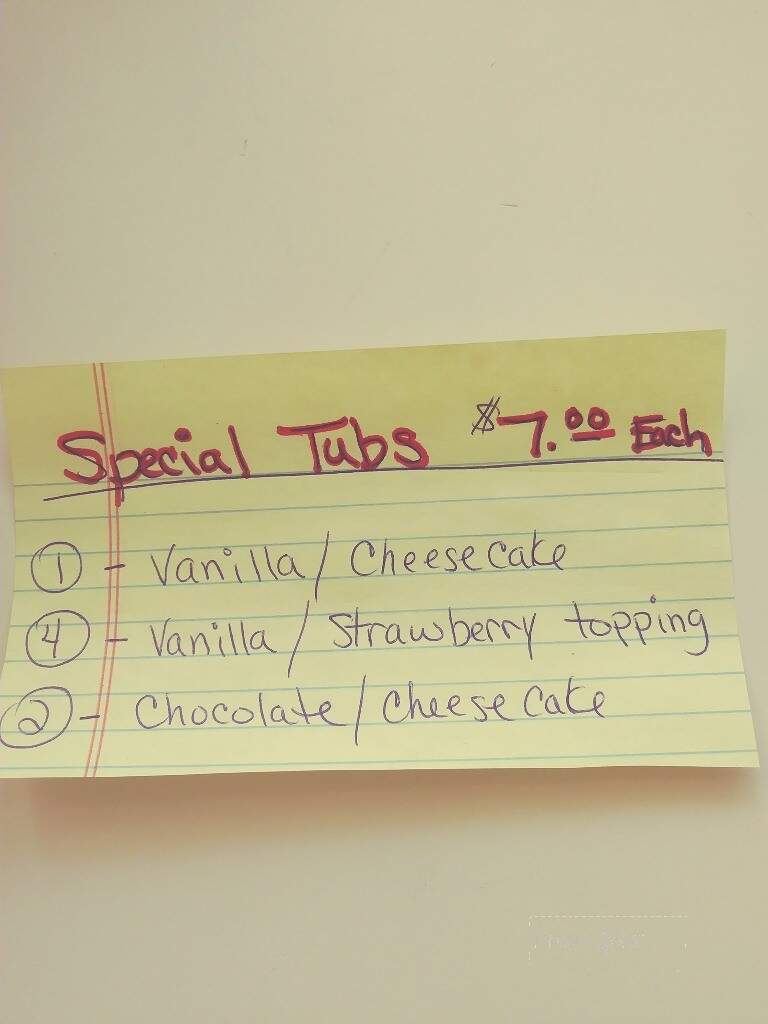 Special Tubs $7.00 Each
① - Vanilla / Cheese cake
④ - Vanilla / Strawberry topping
② - Chocolate / Cheese Cake